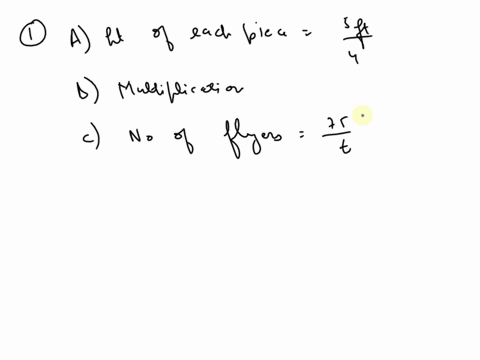 ① A) ht of each piece = 5 ft / 4
B) Multiplication
C) No of flyers = 75 / t